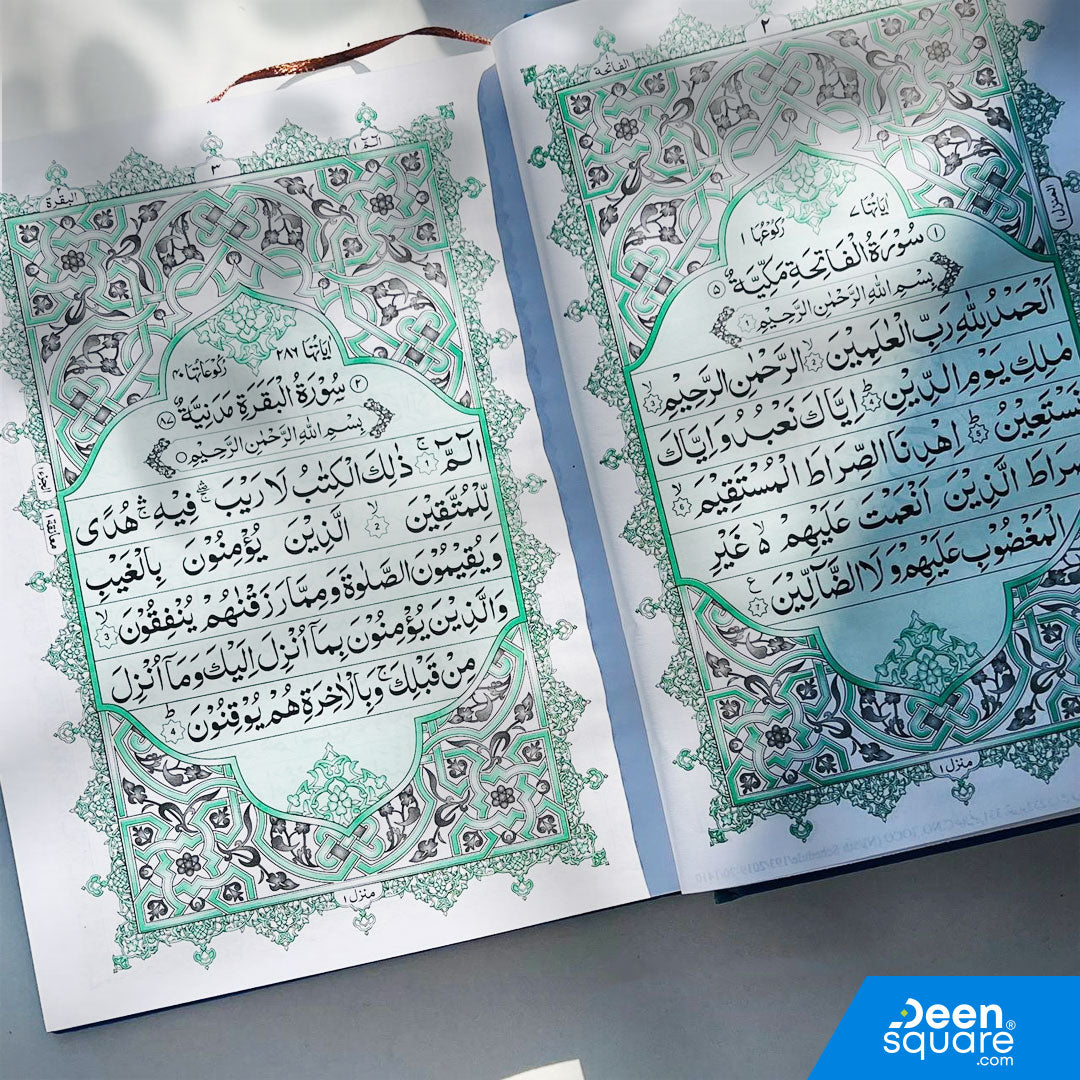 الفاتحة
٢
اٰيَاتُهَا ٧ رُكُوْعُهَا ١
١ سُوْرَةُ الْفَاتِحَةِ مَكِّيَّةٌ ٥
بِسْمِ اللّٰهِ الرَّحْمٰنِ الرَّحِيْمِ ١
اَلْحَمْدُ لِلّٰهِ رَبِّ الْعٰلَمِيْنَ ۙ الرَّحْمٰنِ الرَّحِيْمِ ۙ
مٰلِكِ يَوْمِ الدِّيْنِ ؕ اِيَّاكَ نَعْبُدُ وَ اِيَّاكَ
نَسْتَعِيْنُ ؕ اِهْدِنَا الصِّرَاطَ الْمُسْتَقِيْمَ ۙ
صِرَاطَ الَّذِيْنَ اَنْعَمْتَ عَلَيْهِمْ ۙ۬ غَيْرِ
الْمَغْضُوْبِ عَلَيْهِمْ وَلَا الضَّآلِّيْنَ
منزل ١
الٓمّٓ ١
٣
البقرة ٢
اٰيَاتُهَا ٢٨٦ رُكُوْعَاتُهَا ٤٠
٢ سُوْرَةُ الْبَقَرَةِ مَدَنِيَّةٌ ٨٧
بِسْمِ اللّٰهِ الرَّحْمٰنِ الرَّحِيْمِ
الٓمّٓ ۚ ١ ذٰلِكَ الْكِتٰبُ لَا رَيْبَ ۛۖ فِيْهِ ۛۚ هُدًى
لِّلْمُتَّقِيْنَ ۙ ٢ الَّذِيْنَ يُؤْمِنُوْنَ بِالْغَيْبِ
وَيُقِيْمُوْنَ الصَّلٰوةَ وَمِمَّا رَزَقْنٰهُمْ يُنْفِقُوْنَ ۙ ٣
وَالَّذِيْنَ يُؤْمِنُوْنَ بِمَآ اُنْزِلَ اِلَيْكَ وَمَآ اُنْزِلَ
مِنْ قَبْلِكَ ۚ وَبِالْاٰخِرَةِ هُمْ يُوْقِنُوْنَ ؕ ٤
معانقة ١
منزل ١
Deen
square
.com